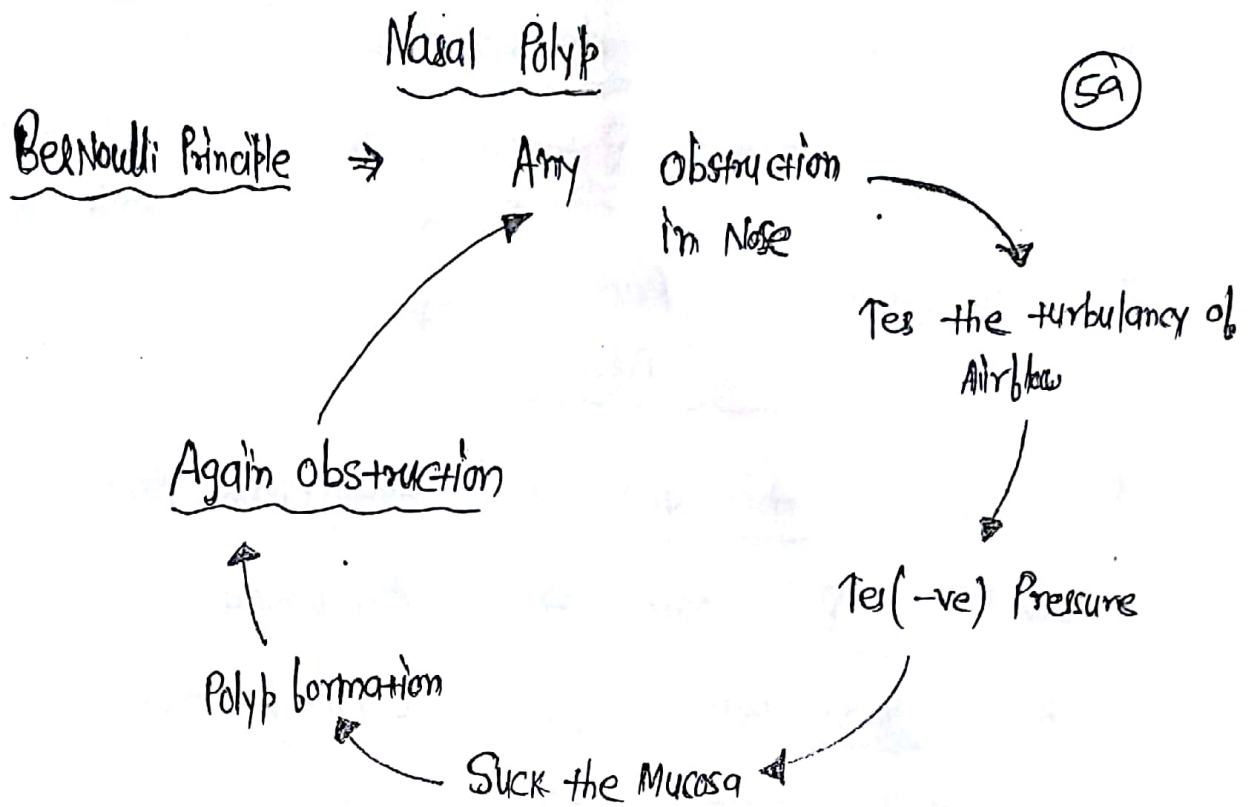 Nasal Polyp
59
BerNoulli Principle ⇒ Any obstruction
in Nose
↑es the turbulancy of
Airflow
↑es (-ve) Pressure
Suck the Mucosa
Polyp formation
Again obstruction